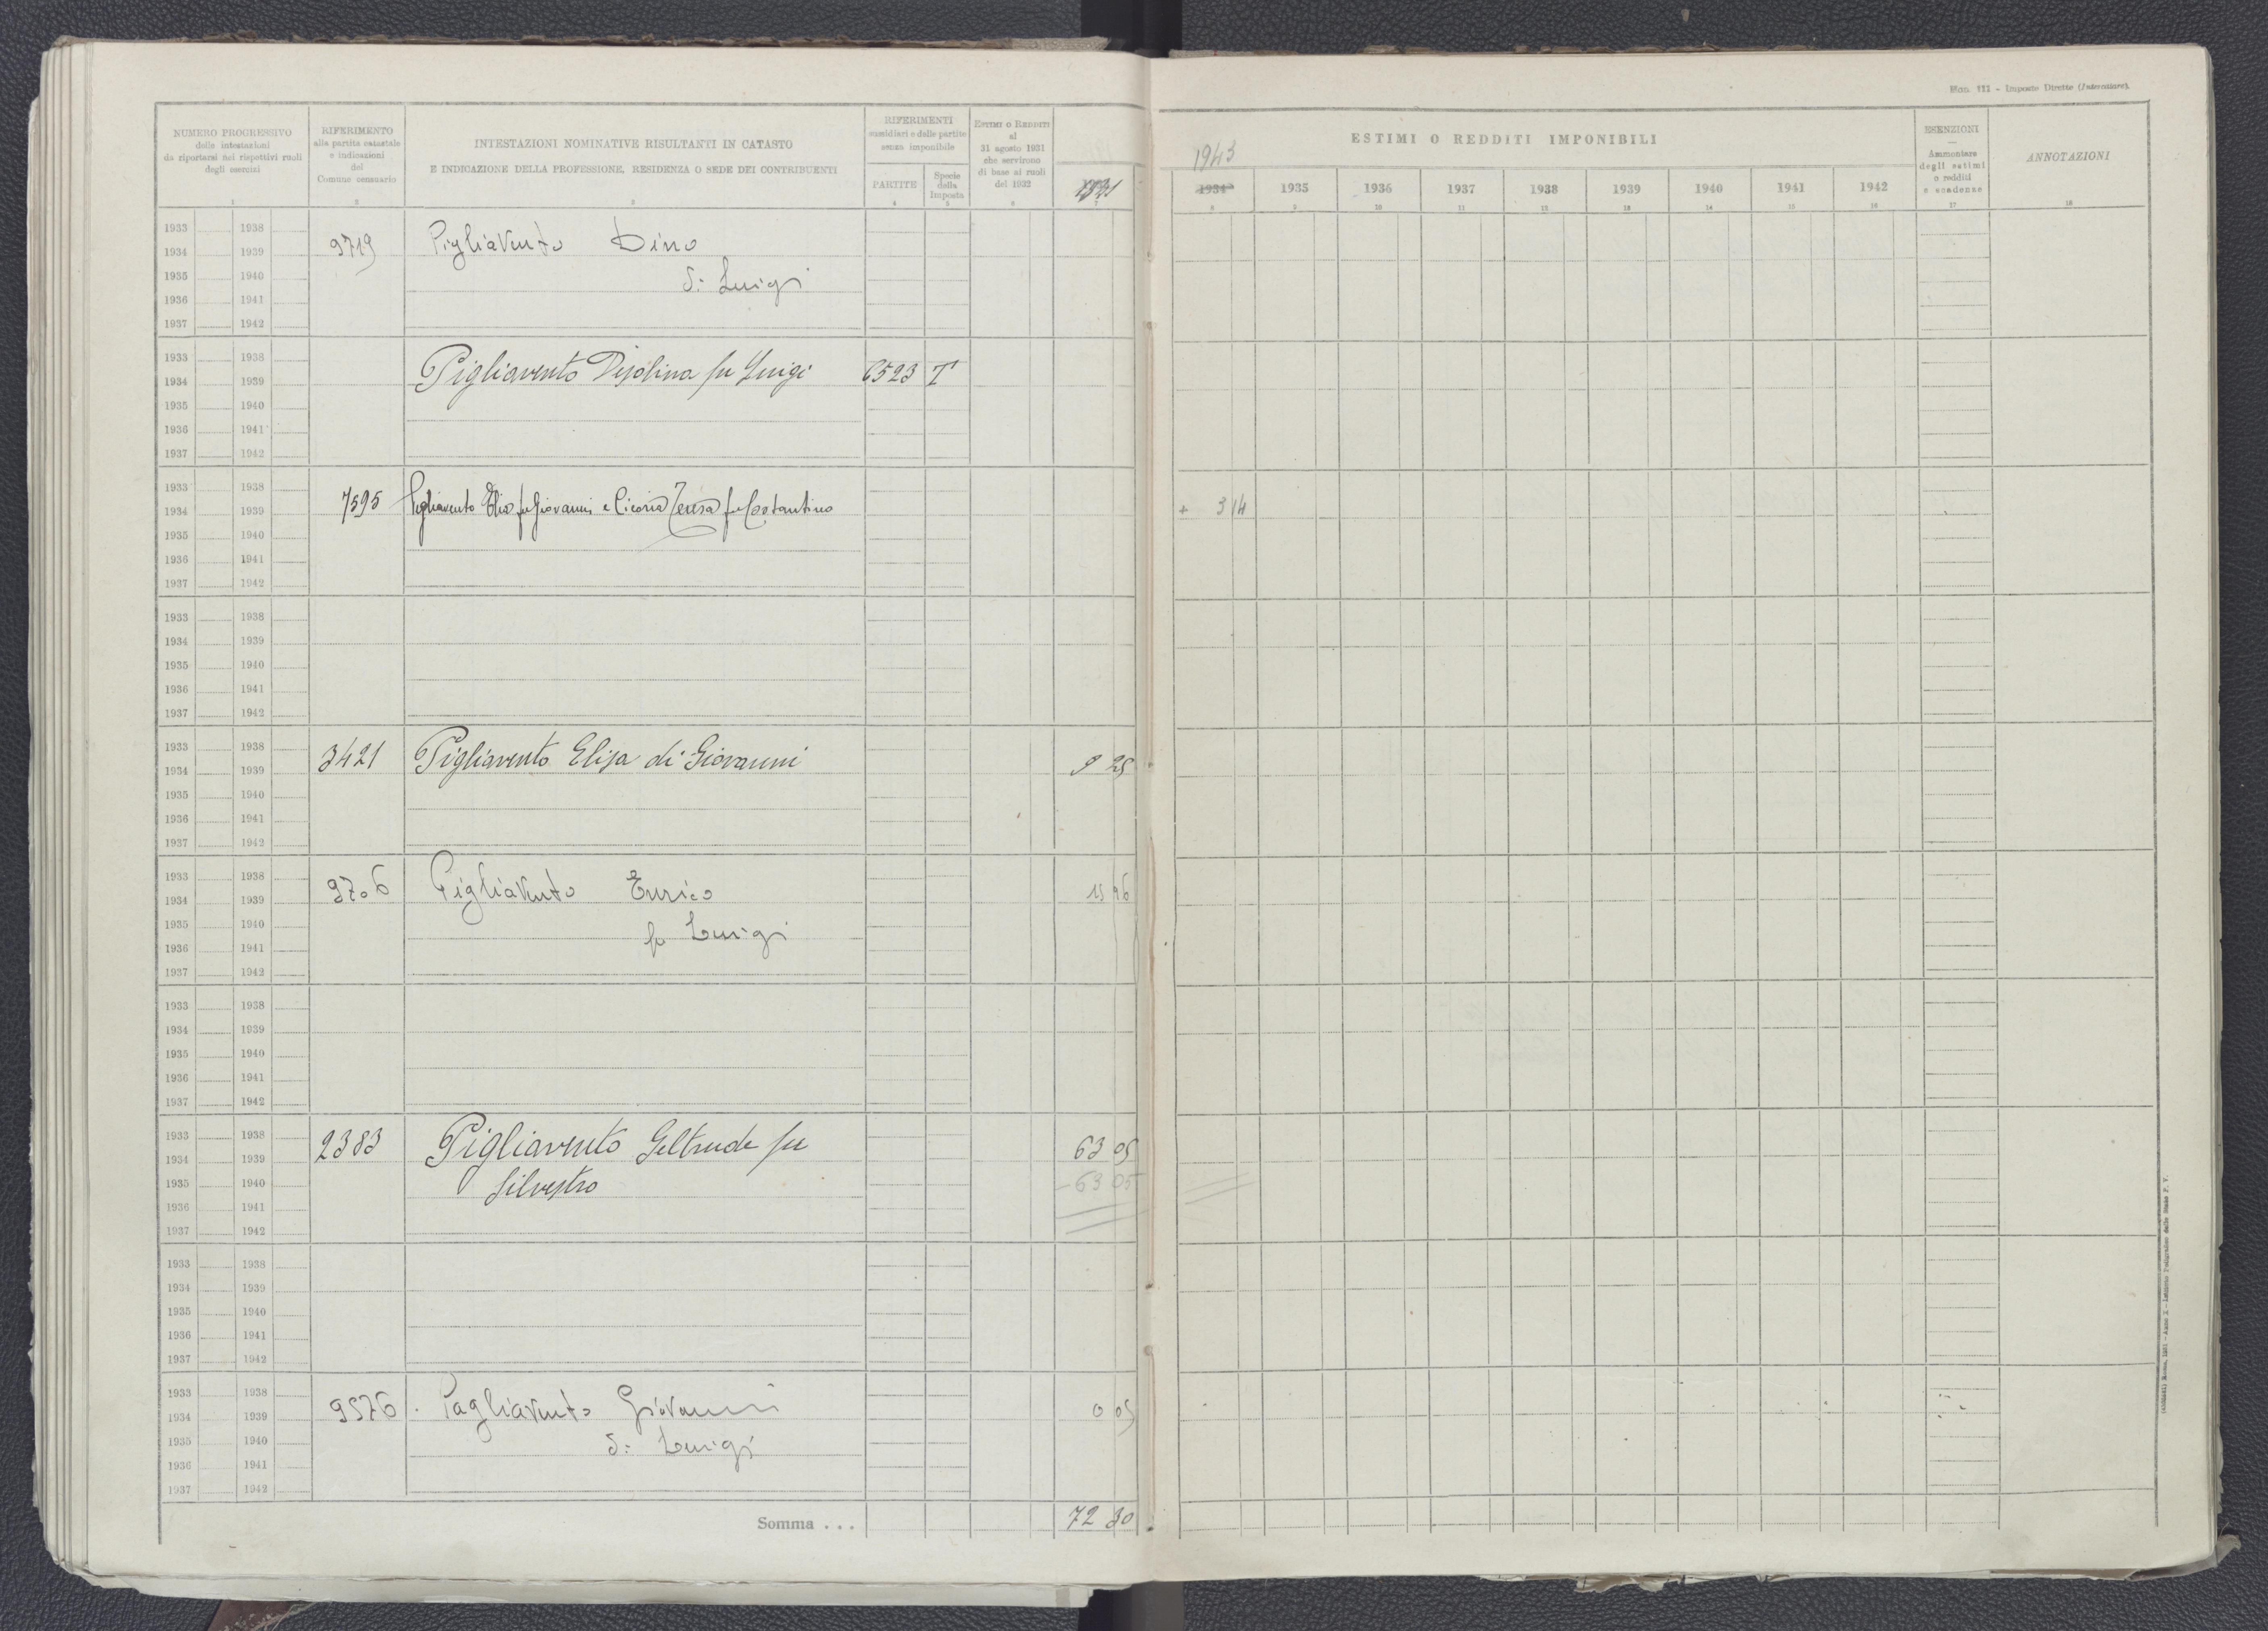 Mod. 111 - Imposte Dirette (Intercalare).
NUMERO PROGRESSIVO
delle intestazioni
da riportarsi nei rispettivi ruoli
degli esercizi
RIFERIMENTO
alla partita catastale
e indicazioni
del
Comune censuario
INTESTAZIONI NOMINATIVE RISULTANTI IN CATASTO
E INDICAZIONE DELLA PROFESSIONE, RESIDENZA O SEDE DEI CONTRIBUENTI
RIFERIMENTI
sussidiari e delle partite
senza imponibile
PARTITE
Specie
della
Imposta
ESTIMI O REDDITI
al
31 agosto 1931
che servirono
di base ai ruoli
del 1932
ESTIMI O REDDITI IMPONIBILI
1943
1934 1935 1936 1937 1938 1939 1940 1941 1942
ESENZIONI
Ammontare
degli estimi
o redditi
e scadenze
ANNOTAZIONI
1 2 3 4 5 6 7 8 9 10 11 12 13 14 15 16 17 18
1933 1938
1934 1939 9719 Pigliavento Dino
1935 1940 di Luigi
1936 1941
1937 1942
1933 1938
1934 1939 Pigliavento Disolina fu Luigi 6523 T
1935 1940
1936 1941
1937 1942
1933 1938
1934 1939 7595 Pigliavento Elio fu Giovanni e Cicoria Teresa fu Costantino + 3 14
1935 1940
1936 1941
1937 1942
1933 1938
1934 1939
1935 1940
1936 1941
1937 1942
1933 1938
1934 1939 3421 Pigliavento Elisa di Giovanni 9 25
1935 1940
1936 1941
1937 1942
1933 1938
1934 1939 9706 Pigliavento Enrico 15 96
1935 1940 fu Luigi
1936 1941
1937 1942
1933 1938
1934 1939
1935 1940
1936 1941
1937 1942
1933 1938
1934 1939 2383 Pigliavento Geltrude fu 63 05
1935 1940 Silvestro - 63 05
1936 1941
1937 1942
1933 1938
1934 1939
1935 1940
1936 1941
1937 1942
1933 1938
1934 1939 9576 Pagliavento Giovanni 0 05
1935 1940 di Luigi
1936 1941
1937 1942
Somma . . . 72 30